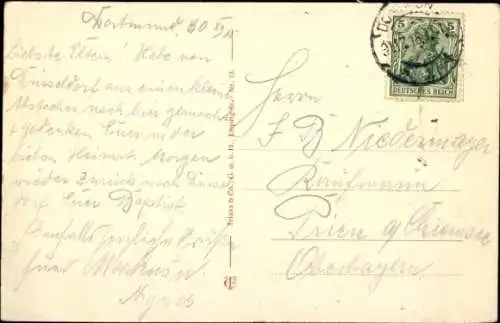 Dortmund, 30 XI
Liebste Eltern! Habe von
Düsseldorf aus einen kleinen
Abstecher nach hier gemacht
& gedenken Euer in der
lieben Heimat. Morgen
wieder zurück nach Düssel
dorf. Euer Baptist
Ebenfalls herzliche Grüße
Agnes
Trinks & Co. G. m. b. H., Leipzig
Herrn
J B Niedermayer
Kaufmann
Prien a/Chiemsee
Oberbayern
5 5
DEUTSCHES REICH